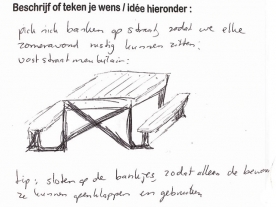 Beschrijf of teken je wens / idée hieronder :
pick nick banken op straat, zodat we elke
zomeravond rustig kunnen zitten.
vast straatmeubilair:
tip: sloten op de bankjes, zodat alleen de bewoners
ze kunnen openklappen en gebruiken